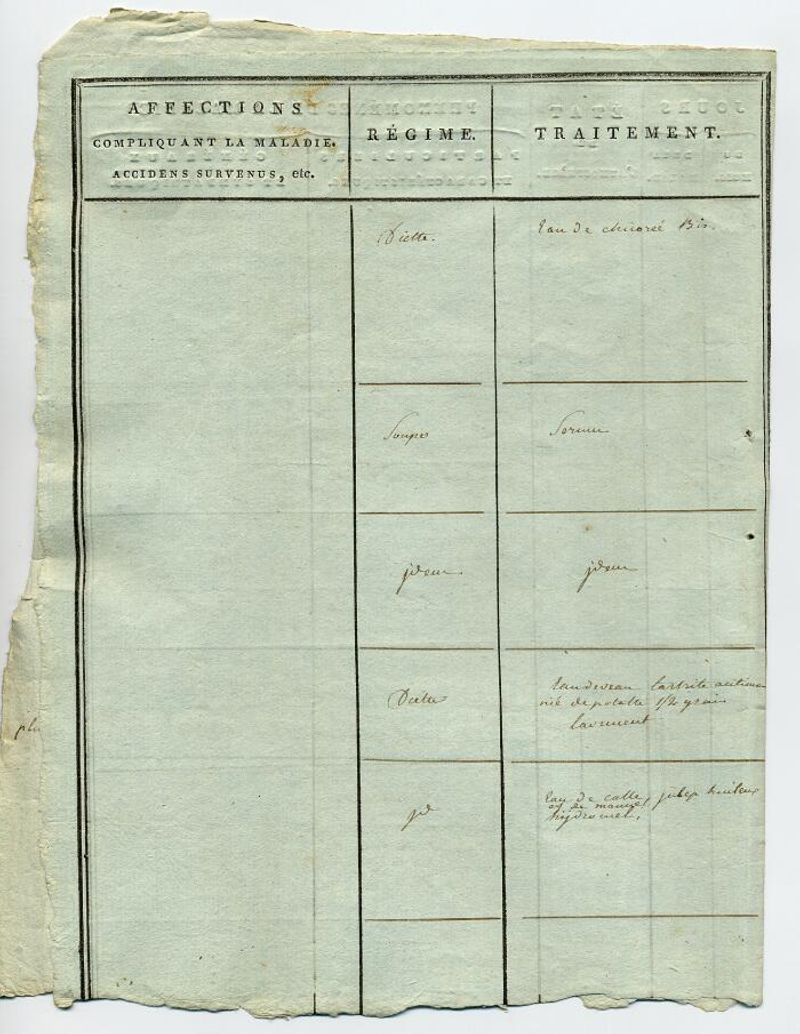 AFFECTIONS
COMPLIQUANT LA MALADIE.
ACCIDENS SURVENUS, etc.
RÉGIME.
TRAITEMENT.
Diette.
Eau de chicoreé Bis.
Soupe
Serum
jdem
jdem
Diette
Eau de veau tartrite antimo
nié de potasse 1/2 grain
lavement
jd
Eau de
julep huileux
hydromel,
plu